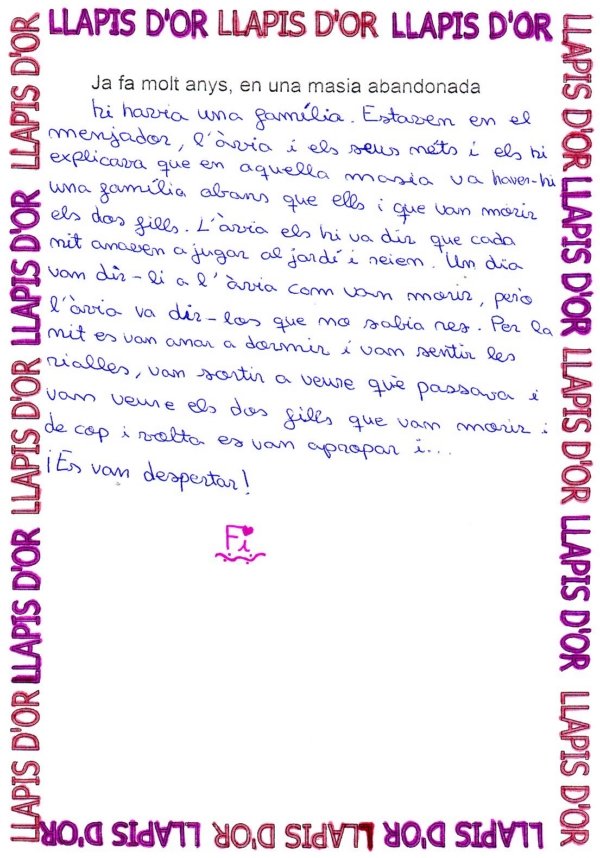 LLAPIS D'OR LLAPIS D'OR LLAPIS D'OR
Ja fa molt anys, en una masia abandonada
hi havia una família. Estaven en el
menjador, l'àvia i els seus néts i els hi
explicava que en aquella masia va haver-hi
una família abans que ells i que van morir
els dos fills. L'àvia els hi va dir que cada
nit anaven a jugar al jardí i reien. Un dia
van dir-li a l'àvia com van morir, però
l'àvia va dir-los que no sabia res. Per la
nit es van anar a dormir i van sentir les
rialles, van sortir a veure què passava i
van veure els dos fills que van morir i
de cop i volta es van apropar i...
¡Es van despertar!
Fi
LLAPIS D'OR LLAPIS D'OR LLAPIS D'OR LLAPIS D'OR LLAPIS D'OR
LLAPIS D'OR LLAPIS D'OR LLAPIS D'OR LLAPIS D'OR LLAPIS D'OR
LLAPIS D'OR LLAPIS D'OR LLAPIS D'OR LLAPIS D'OR